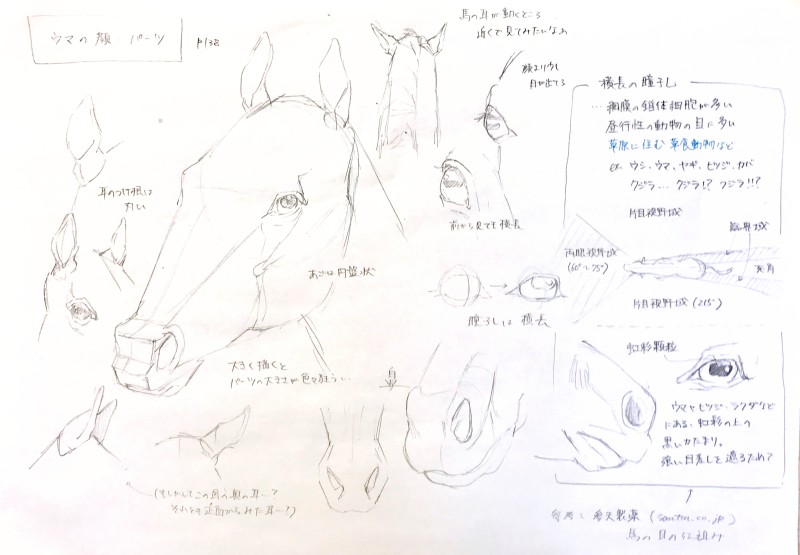 ウマの顔 パーツ
P138
馬の耳が動くところ
近くで見てみたいなぁ
顔より少し
目が出てる
耳のつけ根は
丸い
前から見ても横長
あごは円盤状
瞳孔は横長
大きく描くと
パーツの大きさが色々狂う…
鼻
(もしかしてこの図の奥の耳…?
それとも正面からみた耳…?)
横長の瞳孔
…網膜の錐体細胞が多い
昼行性の動物の目に多い
草原に住む草食動物など
ex ウシ、ウマ、ヤギ、ヒツジ、カバ
クジラ… クジラ!? クジラ!!?
片目視野域
両眼視野域
(60°~75°)
死角
片目視野域(215°)
虹彩顆粒
ウマやヒツジ、ラクダなど
にある、虹彩の上の
黒いかたまり。
強い日差しを遮るため?
参考:参天製薬 (santen.co.jp)
馬の目の仕組み